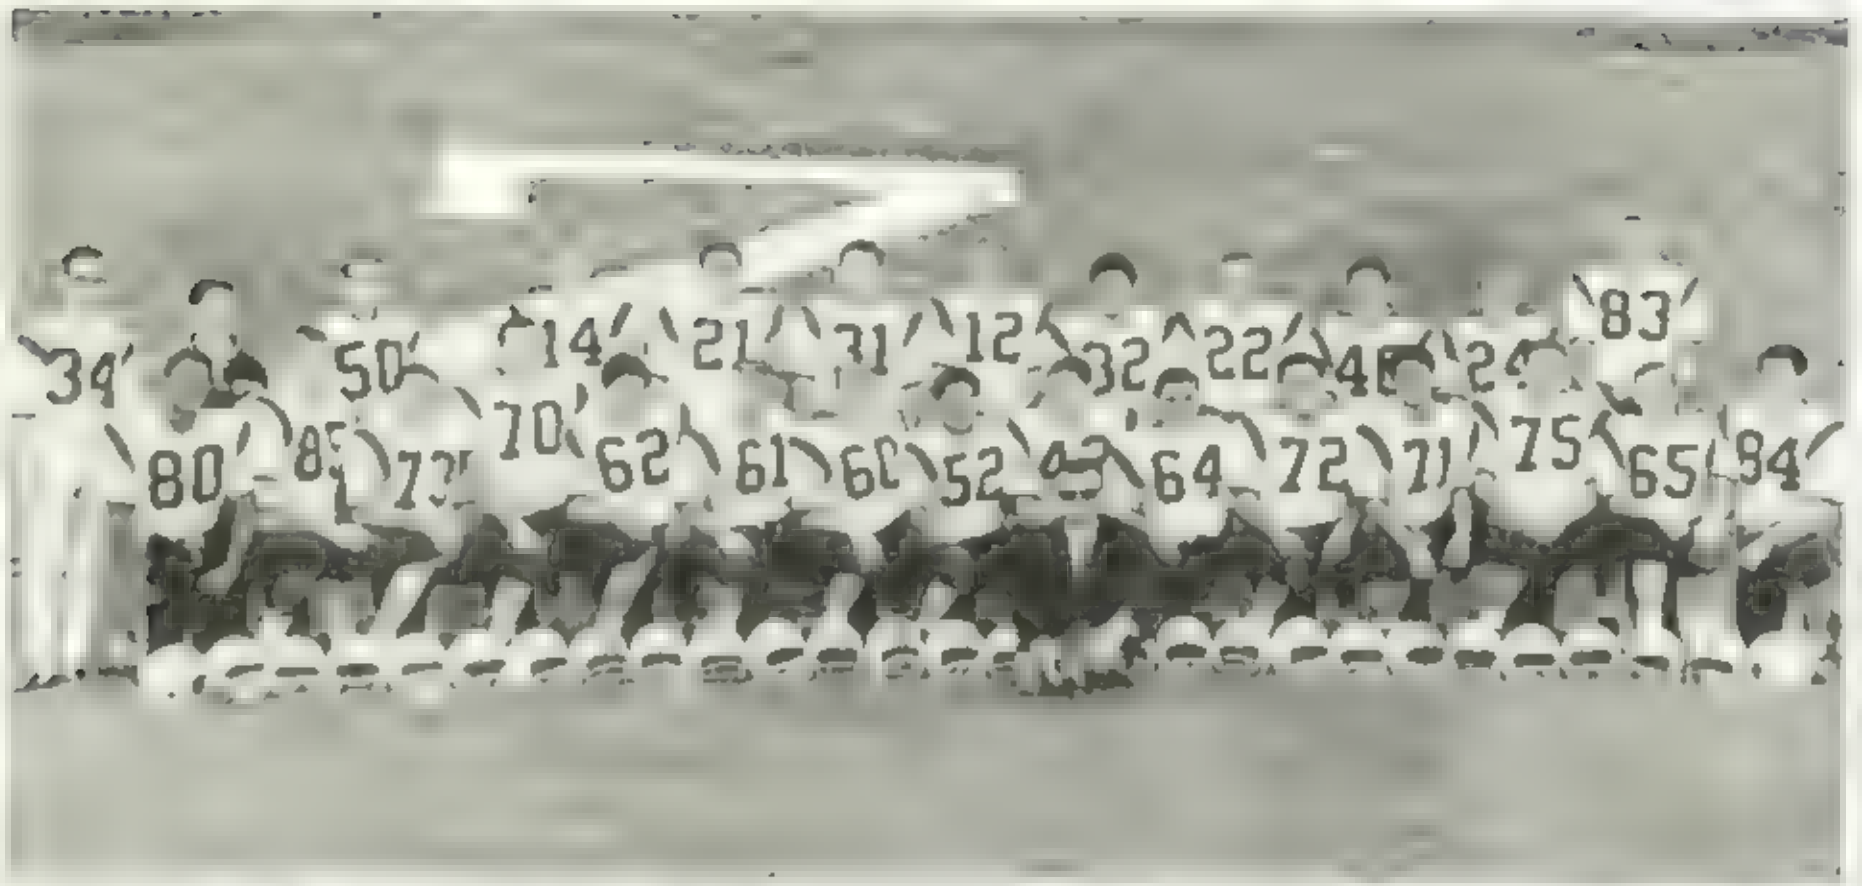 34 50 14 21 31 12 32 22 24 83
80 73 70 62 61 60 52 64 72 71 75 65 84